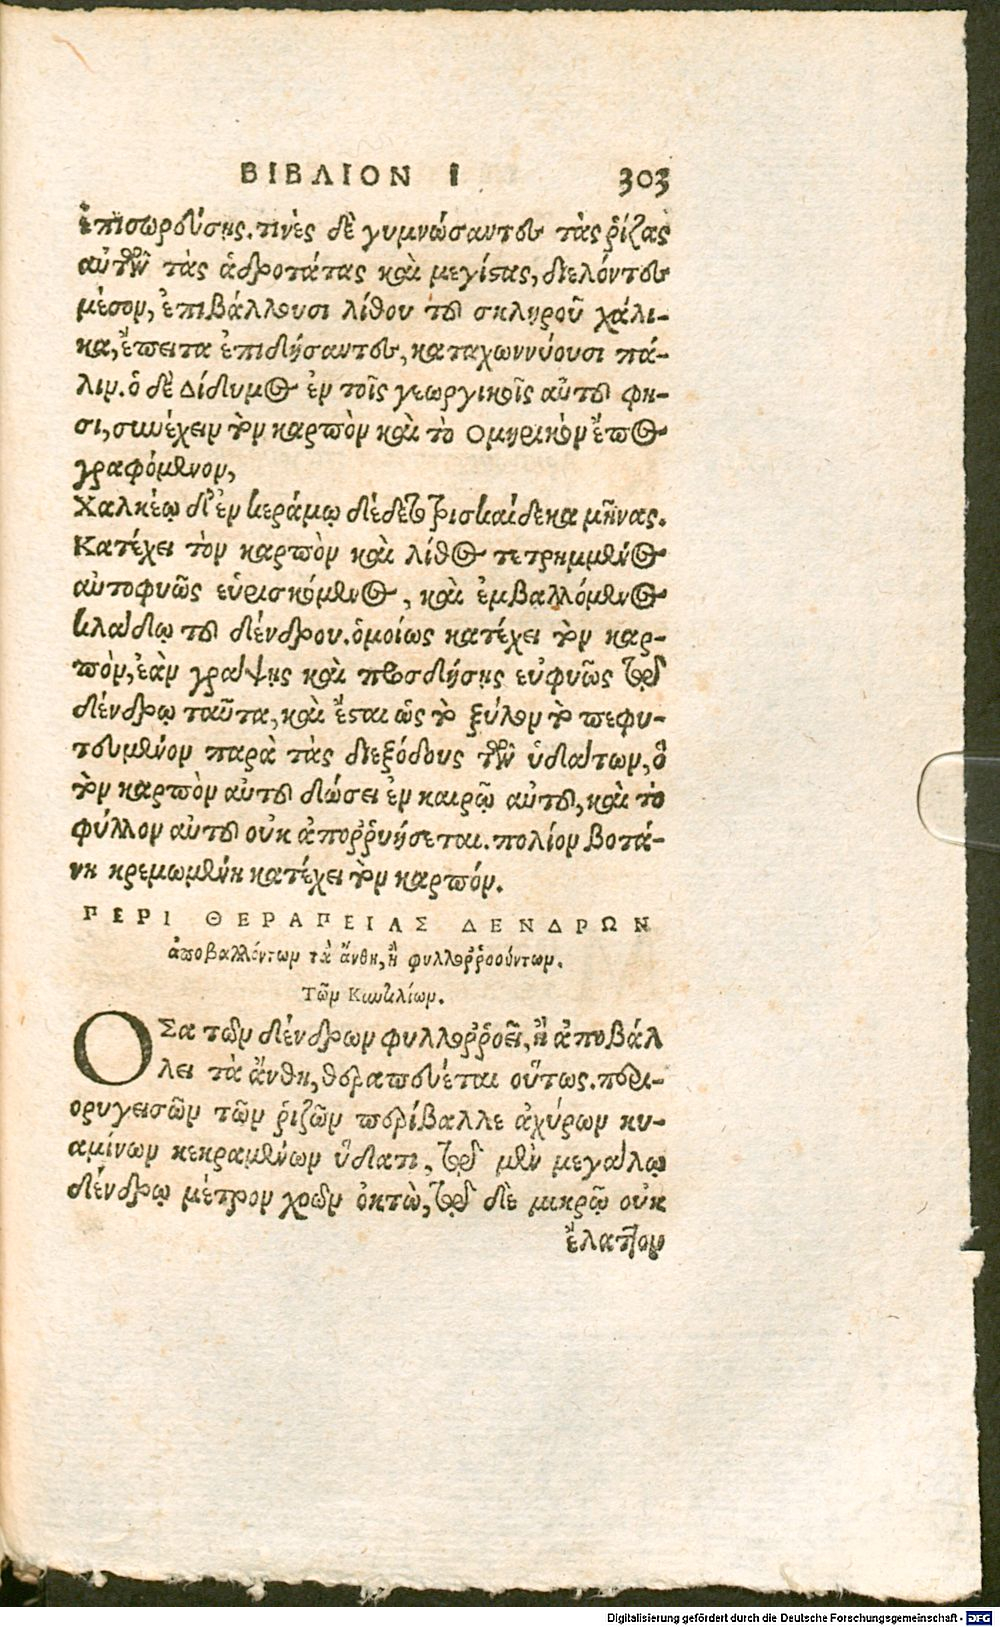 ΒΙΒΛΙΟΝ Ι 303
ἐπισωρεύσης. τινὲς δὲ γυμνώσαντες τὰς ῥίζας
αὐτῶν τὰς ἁδροτάτας καὶ μεγίστας, διελόντες
μέσον, ἐπιβάλλουσι λίθου τοῦ σκληροῦ χάλι-
κα, ἔπειτα ἐπιδήσαντες, καταχωννύουσι πά-
λιν. ὁ δὲ Δίδυμος ἐν τοῖς γεωργικοῖς αὐτοῦ φη-
σι, συνέχειν τὸν καρπὸν καὶ τὸ Ομηρικὸν ἔπος
γραφόμενον,
Χαλκέῳ δ' ἐν κεράμῳ δέδετο τρισκαίδεκα μῆνας.
Κατέχει τὸν καρπὸν καὶ λίθος τετρημμένος
αὐτοφυῶς εὑρισκόμενος, καὶ ἐμβαλλόμενος
κλάδῳ τοῦ δένδρου. ὁμοίως κατέχει τὸν καρ-
πὸν, ἐὰν γράψης καὶ προσδήσης εὐφυῶς τῷ
δένδρῳ ταῦτα, καὶ ἔσται ὡς τὸ ξύλον τὸ πεφυ-
τευμένον παρὰ τὰς διεξόδους τῶν ὑδάτων, ὃ
τὸν καρπὸν αὐτοῦ δώσει ἐν καιρῷ αὐτοῦ, καὶ τὸ
φύλλον αὐτοῦ οὐκ ἀποῤῥυήσεται. πολίον βοτά-
νη κρεμωμένη κατέχει τὸν καρπόν.
ΠΕΡΙ ΘΕΡΑΠΕΙΑΣ ΔΕΝΔΡΩΝ
ἀποβαλλόντων τὰ ἄνθη, ἢ φυλλοῤῥοούντων.
Τῶν Κυντιλίων.
ΟΣα τῶν δένδρων φυλλοῤῥοεῖ, ἢ ἀποβάλ
λει τὰ ἄνθη, θεραπεύεται οὕτως. περι-
ορυγεισῶν τῶν ῥιζῶν περίβαλλε ἀχύρων κυ-
αμίνων κεκραμένων ὕδατι, τῷ μὲν μεγάλῳ
δένδρῳ μέτρον χοῶν ὀκτὼ, τῷ δὲ μικρῷ οὐκ
ἔλαττον